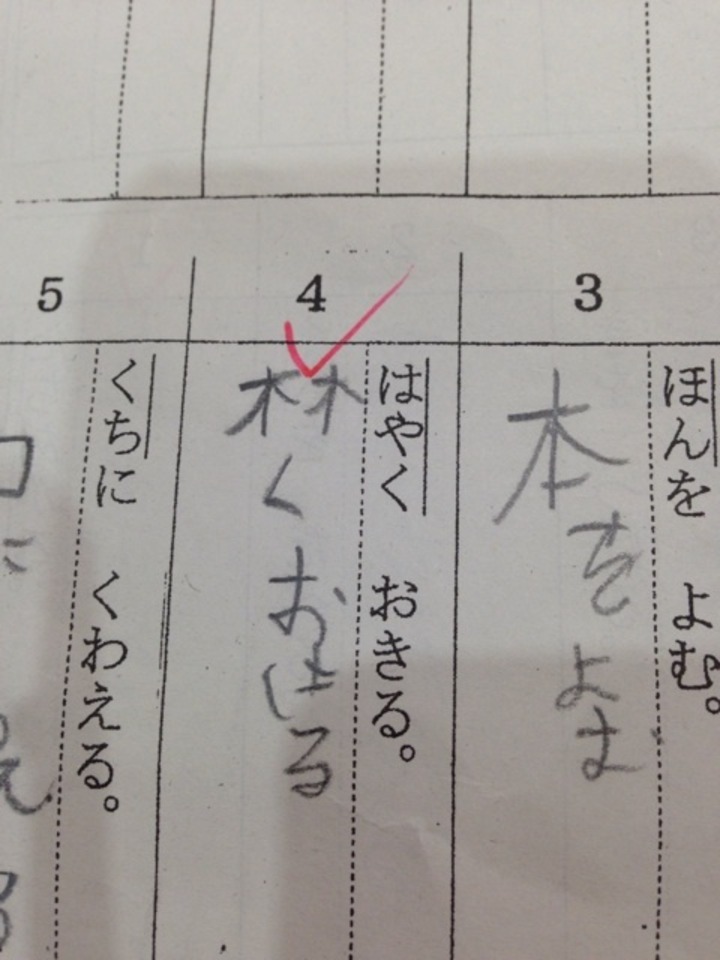 3
ほんを よむ。
本をよむ
4
はやく おきる。
林くおはる
5
くちに くわえる。